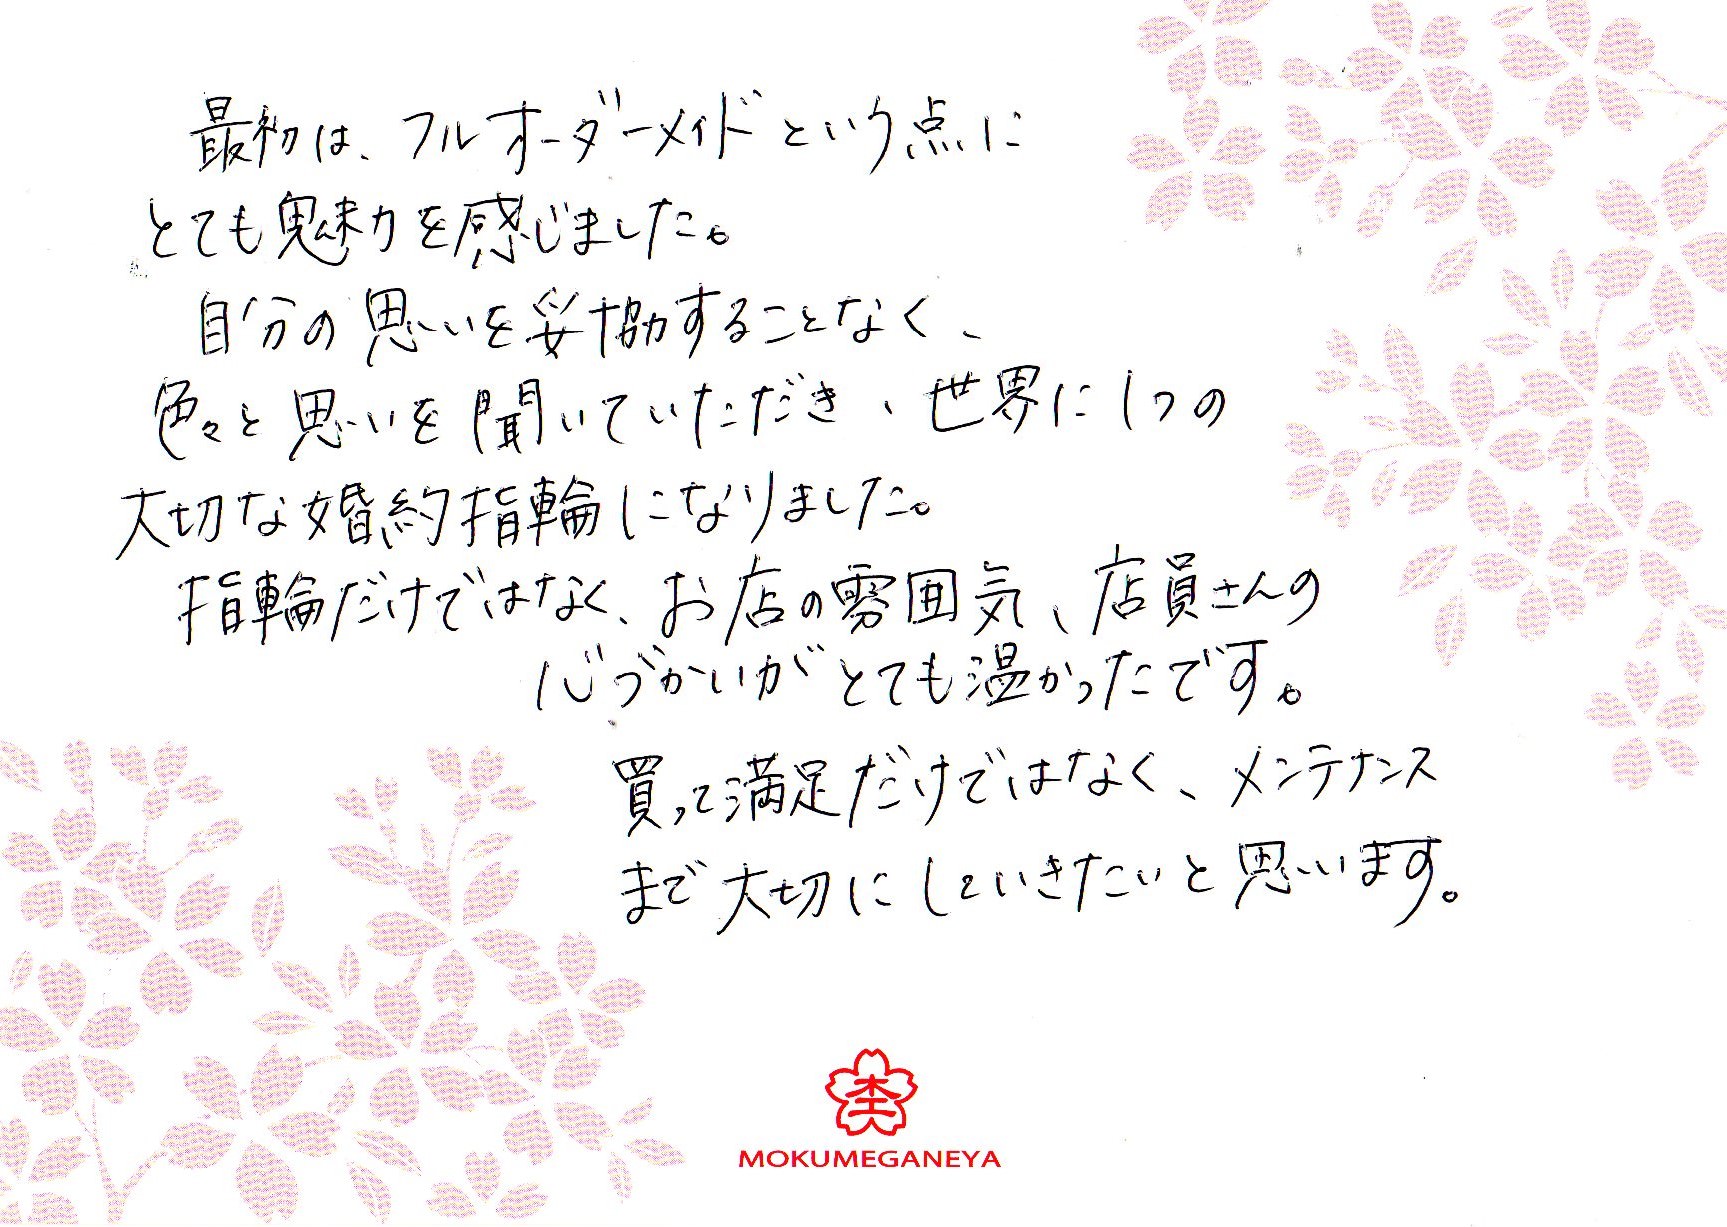 最初は、フルオーダーメイドという点に
とても魅力を感じました。
自分の思いを妥協することなく、
色々と思いを聞いていただき、世界に1つの
大切な婚約指輪になりました。
指輪だけではなく、お店の雰囲気、店員さんの
心づかいがとても温かったです。
買って満足だけではなく、メンテナンス
まで大切にしていきたいと思います。
MOKUMEGANEYA